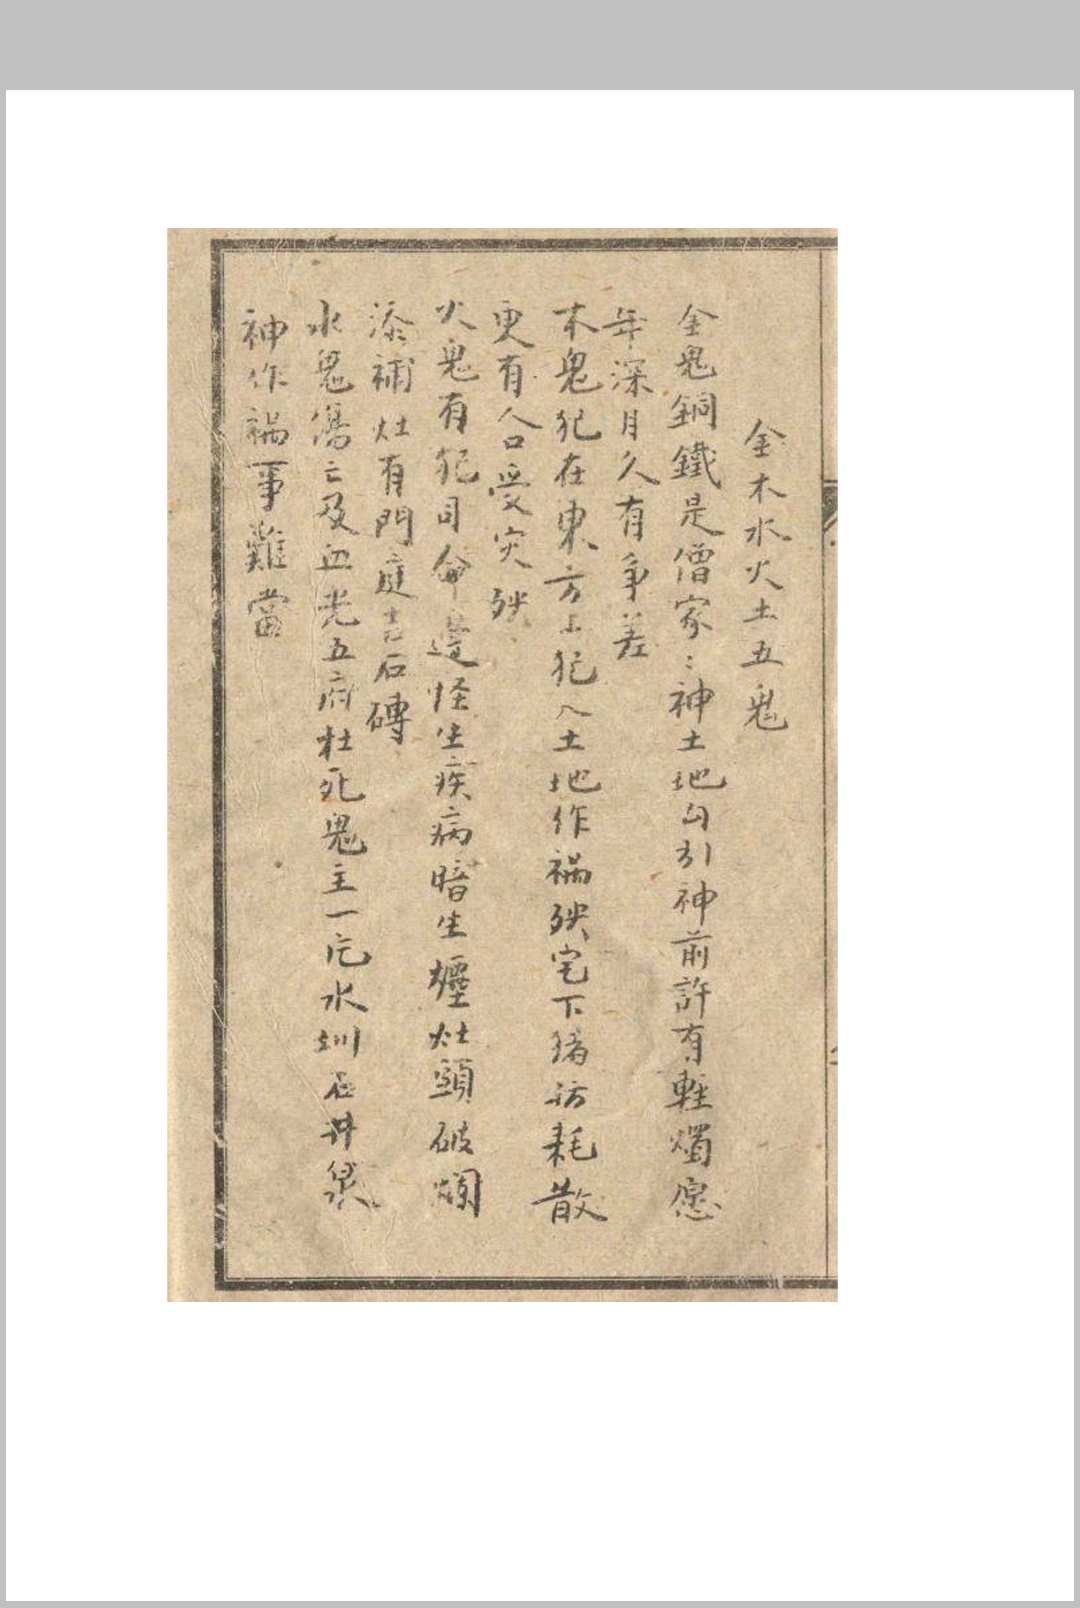 金木水火土五鬼
金鬼銅鐵是僧家〻神土地勾引神前許有輕燭愿
年深月久有争差
木鬼犯在東方上犯入土地作禍殃宅下猪訪耗散
更有人口受灾殃
火鬼有犯司命邊怪生疾病暗生纒灶頭破爛
添補灶有門庭古石磚
水鬼傷亡及血光五府杜死鬼主一凢水圳石井泉
神作禍事難當